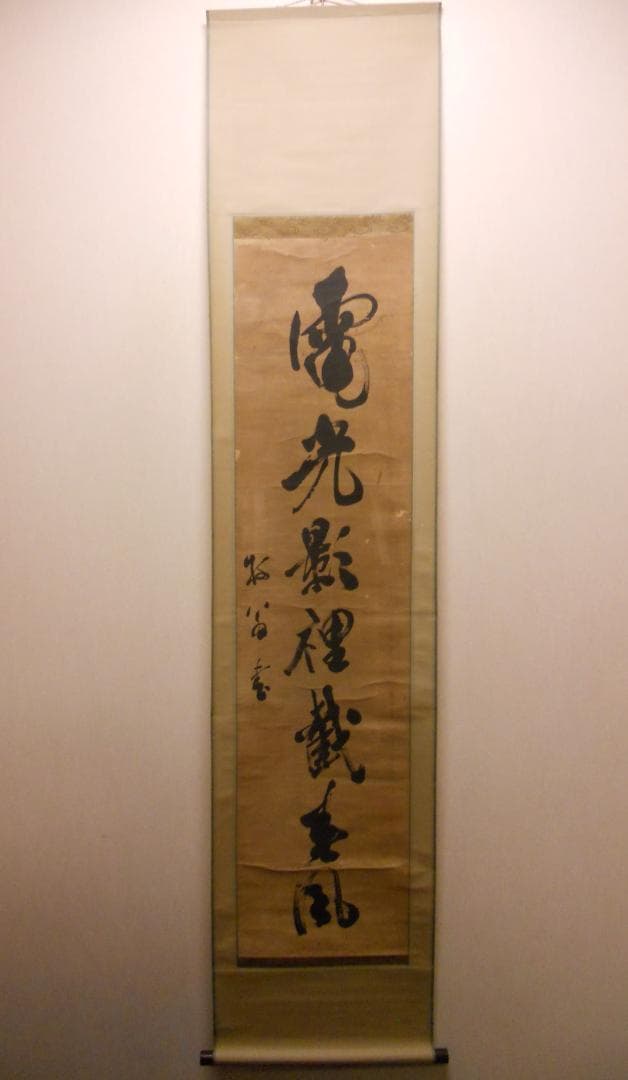 電光影裡截春風
牧翁書